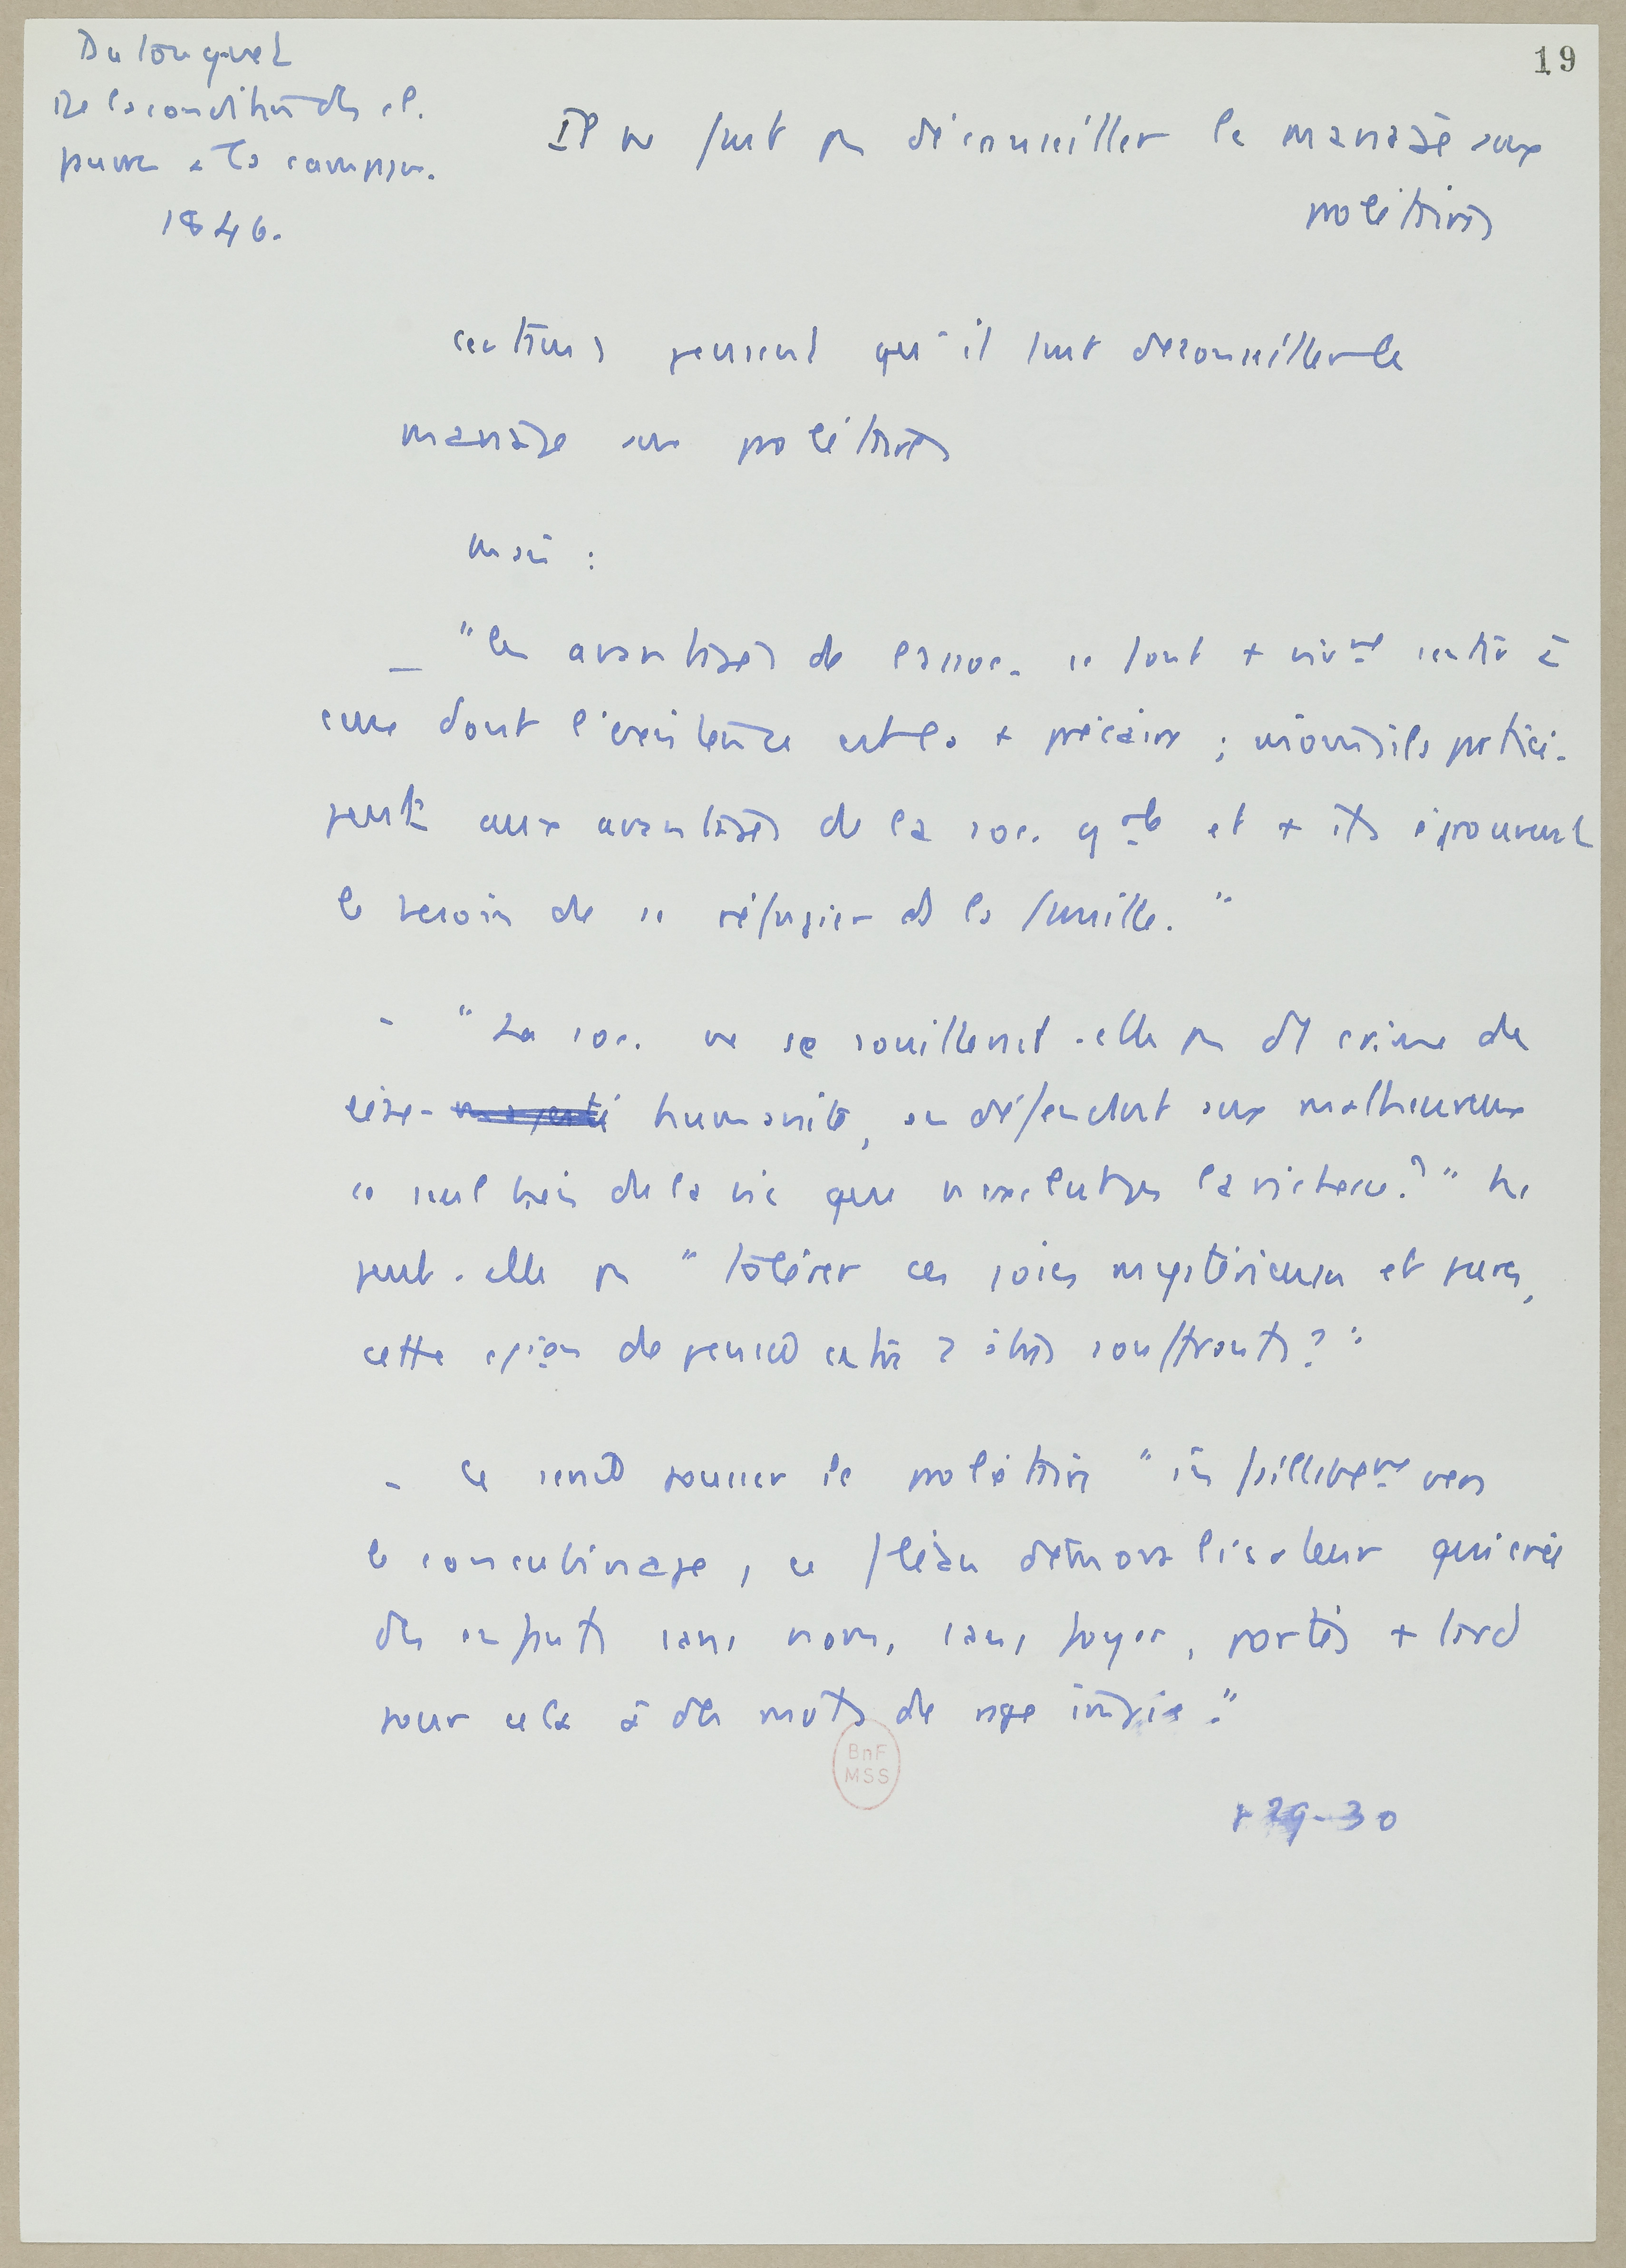 19
Du Touquet
De la condition des cl.
pauvres à la campagne.
1846.
Il ne faut pas déconseiller le mariage aux
prolétaires
certains pensent qu'il faut déconseiller le
mariage aux prolétaires
mais :
_ "les avantages de l'assoc. se font + viv.mt sentir à
ceux dont l'existence est la + précaire ; moins ils partici-
pent aux avantages de la soc. et + ils éprouvent
le besoin de se réfugier ds la famille."
- "La soc. ne se souillerait-elle pas d'1 crime de
lèse-majesté humanité, en défendant aux malheureux
ce seul bien de la vie que la richesse ?" Ne
peut-elle pas "tolérer ces joies mystérieuses et pures,
cette de entre 2 êtres souffrants ?"
- Ce serait pousser le prolétaire "infailliblemt vers
le concubinage, ce fléau démoralisateur qui crée
des enfants sans nom, sans foyer, portés + tard
pour cela à des de"
p 29-30
BnF
MSS